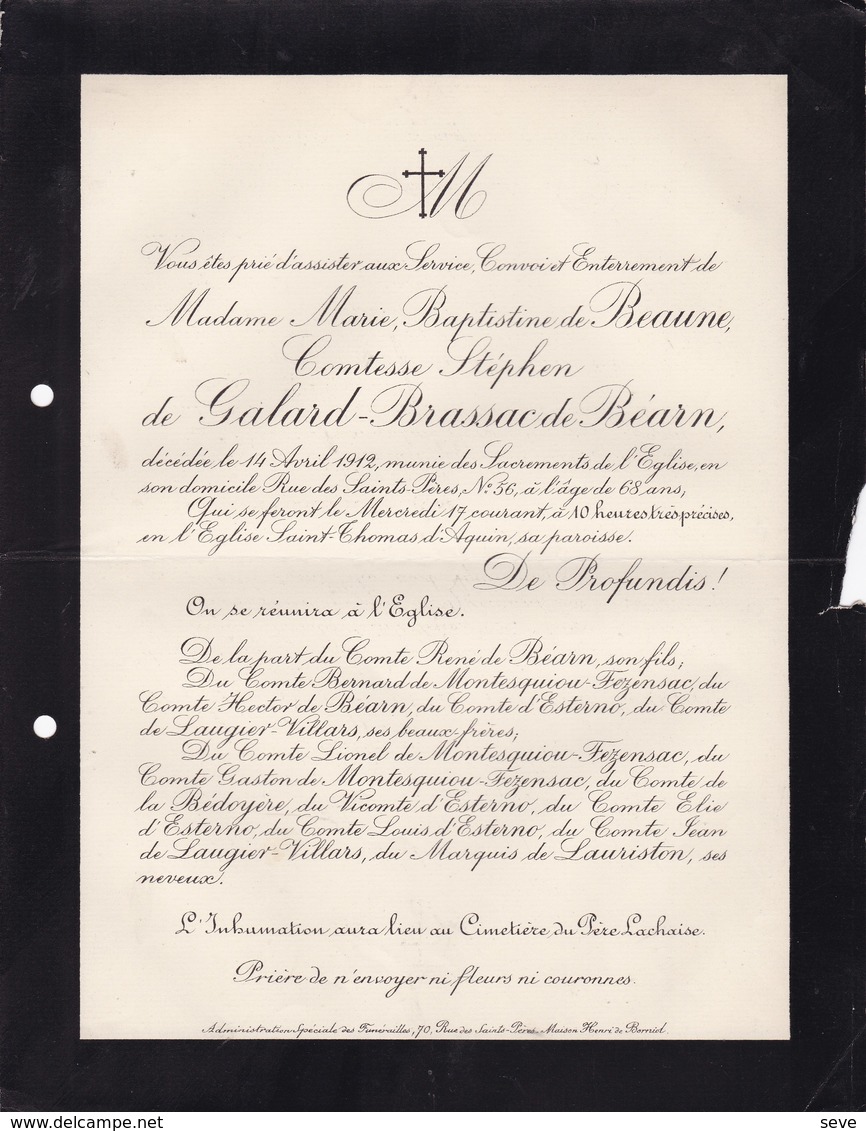 M
Vous êtes prié d'assister aux Service, Convoi et Enterrement de
Madame Marie, Baptistine de Beaune,
Comtesse Stéphen
de Galard-Brassac de Béarn,
décédée le 14 Avril 1912, munie des Sacrements de l'Eglise, en
son domicile Rue des Saints-Pères, No 56, à l'âge de 68 ans;
Qui se feront le Mercredi 17 courant, à 10 heures très précises,
en l'Eglise Saint-Thomas d'Aquin, sa paroisse.
De Profundis!
On se réunira à l'Eglise.
De la part du Comte René de Béarn, son fils;
Du Comte Bernard de Montesquiou-Fezensac, du
Comte Hector de Béarn, du Comte d'Esterno, du Comte
de Laugier-Villars, ses beaux-frères;
Du Comte Lionel de Montesquiou-Fezensac, du
Comte Gaston de Montesquiou-Fezensac, du Comte de
la Bédoyère, du Vicomte d'Esterno, du Comte Elie
d'Esterno, du Comte Louis d'Esterno, du Comte Jean
de Laugier-Villars, du Marquis de Lauriston, ses
neveux.
L'Inhumation aura lieu au Cimetière du Père Lachaise.
Prière de n'envoyer ni fleurs ni couronnes.
Administration Spéciale des Funérailles, 70, Rue des Saints-Pères. Maison Henri de Borniol.
delcampe.net
seve